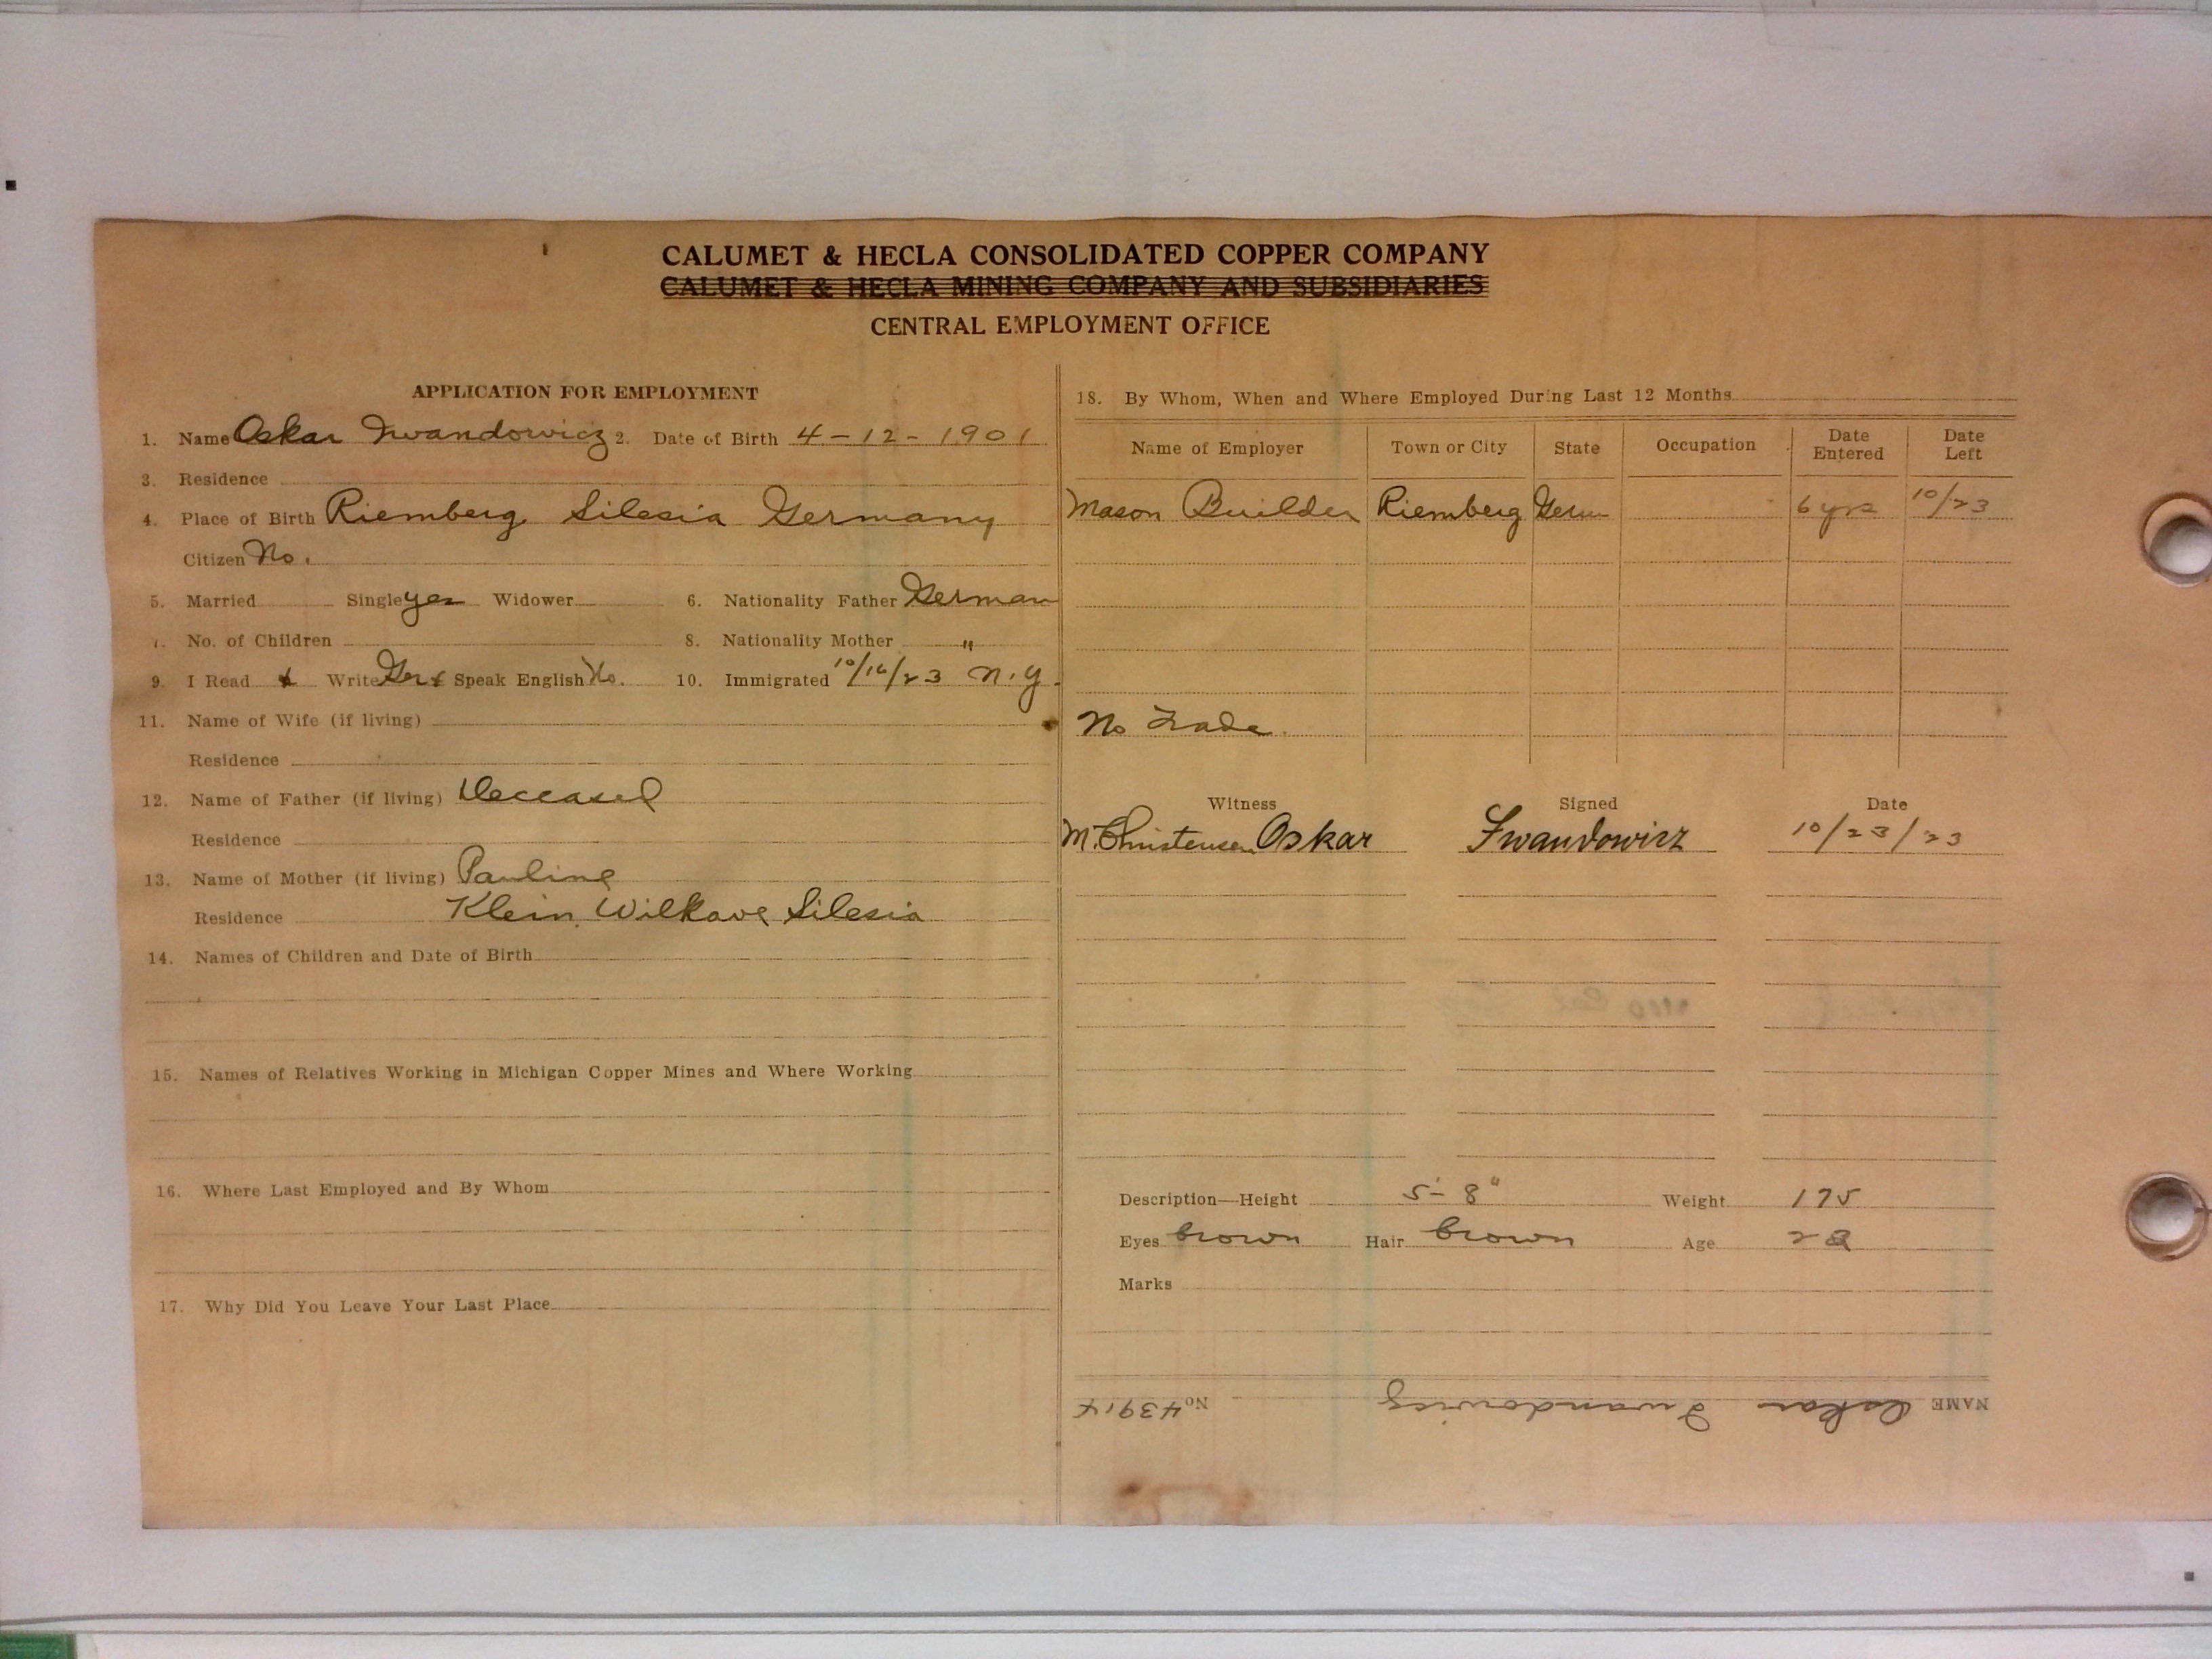 CALUMET & HECLA CONSOLIDATED COPPER COMPANY
CALUMET & HECLA MINING COMPANY AND SUBSIDIARIES
CENTRAL EMPLOYMENT OFFICE
APPLICATION FOR EMPLOYMENT
1. Name Oskar Iwandowicz 2. Date of Birth 4-12-1901
3. Residence
4. Place of Birth Riemberg Silesia Germany
Citizen No.
5. Married Single yes Widower 6. Nationality Father German
7. No. of Children 8. Nationality Mother "
9. I Read & Write Ger & Speak English No. 10. Immigrated 10/16/23 N.Y.
11. Name of Wife (if living)
Residence
12. Name of Father (if living) Deceased
Residence
13. Name of Mother (if living) Pauline
Residence Klein Wilkave Silesia
14. Names of Children and Date of Birth
15. Names of Relatives Working in Michigan Copper Mines and Where Working
16. Where Last Employed and By Whom
17. Why Did You Leave Your Last Place
18. By Whom, When and Where Employed During Last 12 Months
Name of Employer Town or City State Occupation Date Entered Date Left
Mason Builder Riemberg Germ 6 yrs 10/23
No Trade.
Witness Signed Date
M. Christensen Oskar Iwandowicz 10/23/23
Description—Height 5'-8" Weight 175
Eyes brown Hair brown Age 22
Marks
NAME Oskar Iwandowicz No. 43914